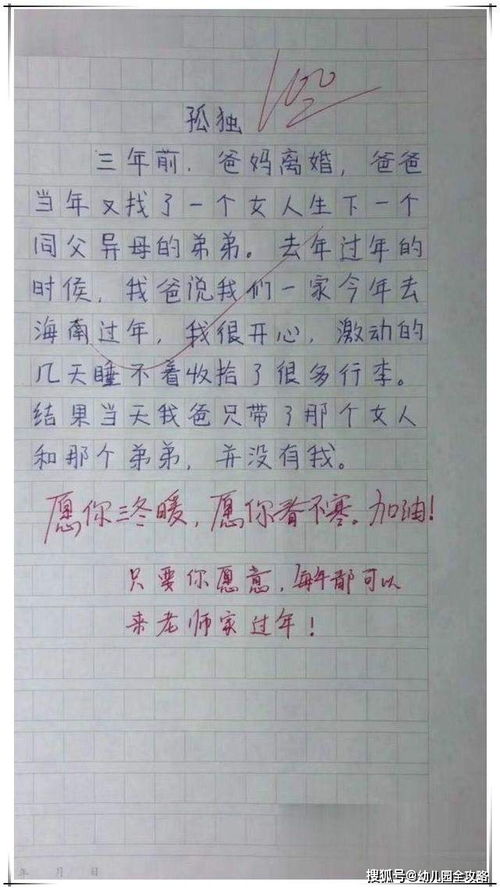 100
孤独
三年前.爸妈离婚,爸爸
当年又找了一个女人生下一个
同父异母的弟弟。去年过年的
时侯,我爸说我们一家今年去
海南过年,我很开心,激动的
几天睡不着收拾了很多行李。
结果当天我爸只带了那个女人
和那个弟弟,并没有我。
愿你三冬暖,愿你春不寒。加油!
只要你愿意,每年都可以
来老师家过年!
年 月 日
搜狐号@幼儿园全攻略